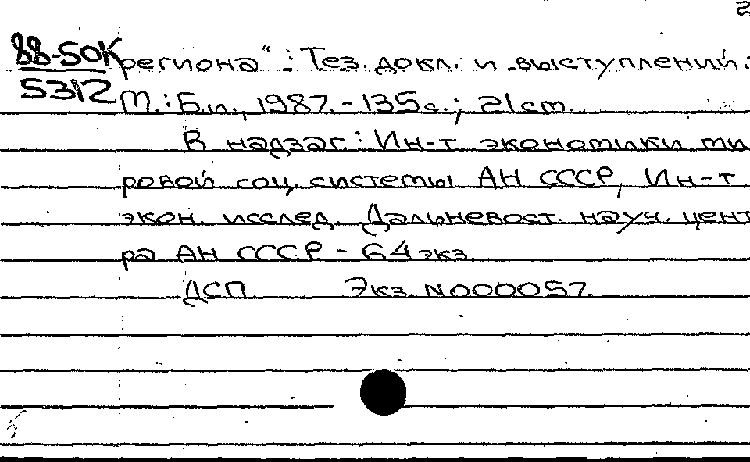 2
88-50К региона": Тез. докл. и выступлений.
5312 М.: Б.и., 1987.-135с.; 21cm.
В надзаг.: Ин-т экономики ми
ровой соц. системы АН СССР, Ин-т
экон. исслед. Дальневост. науч. цент
ра АН СССР - 64 экз.
ДСП Экз. N000057.